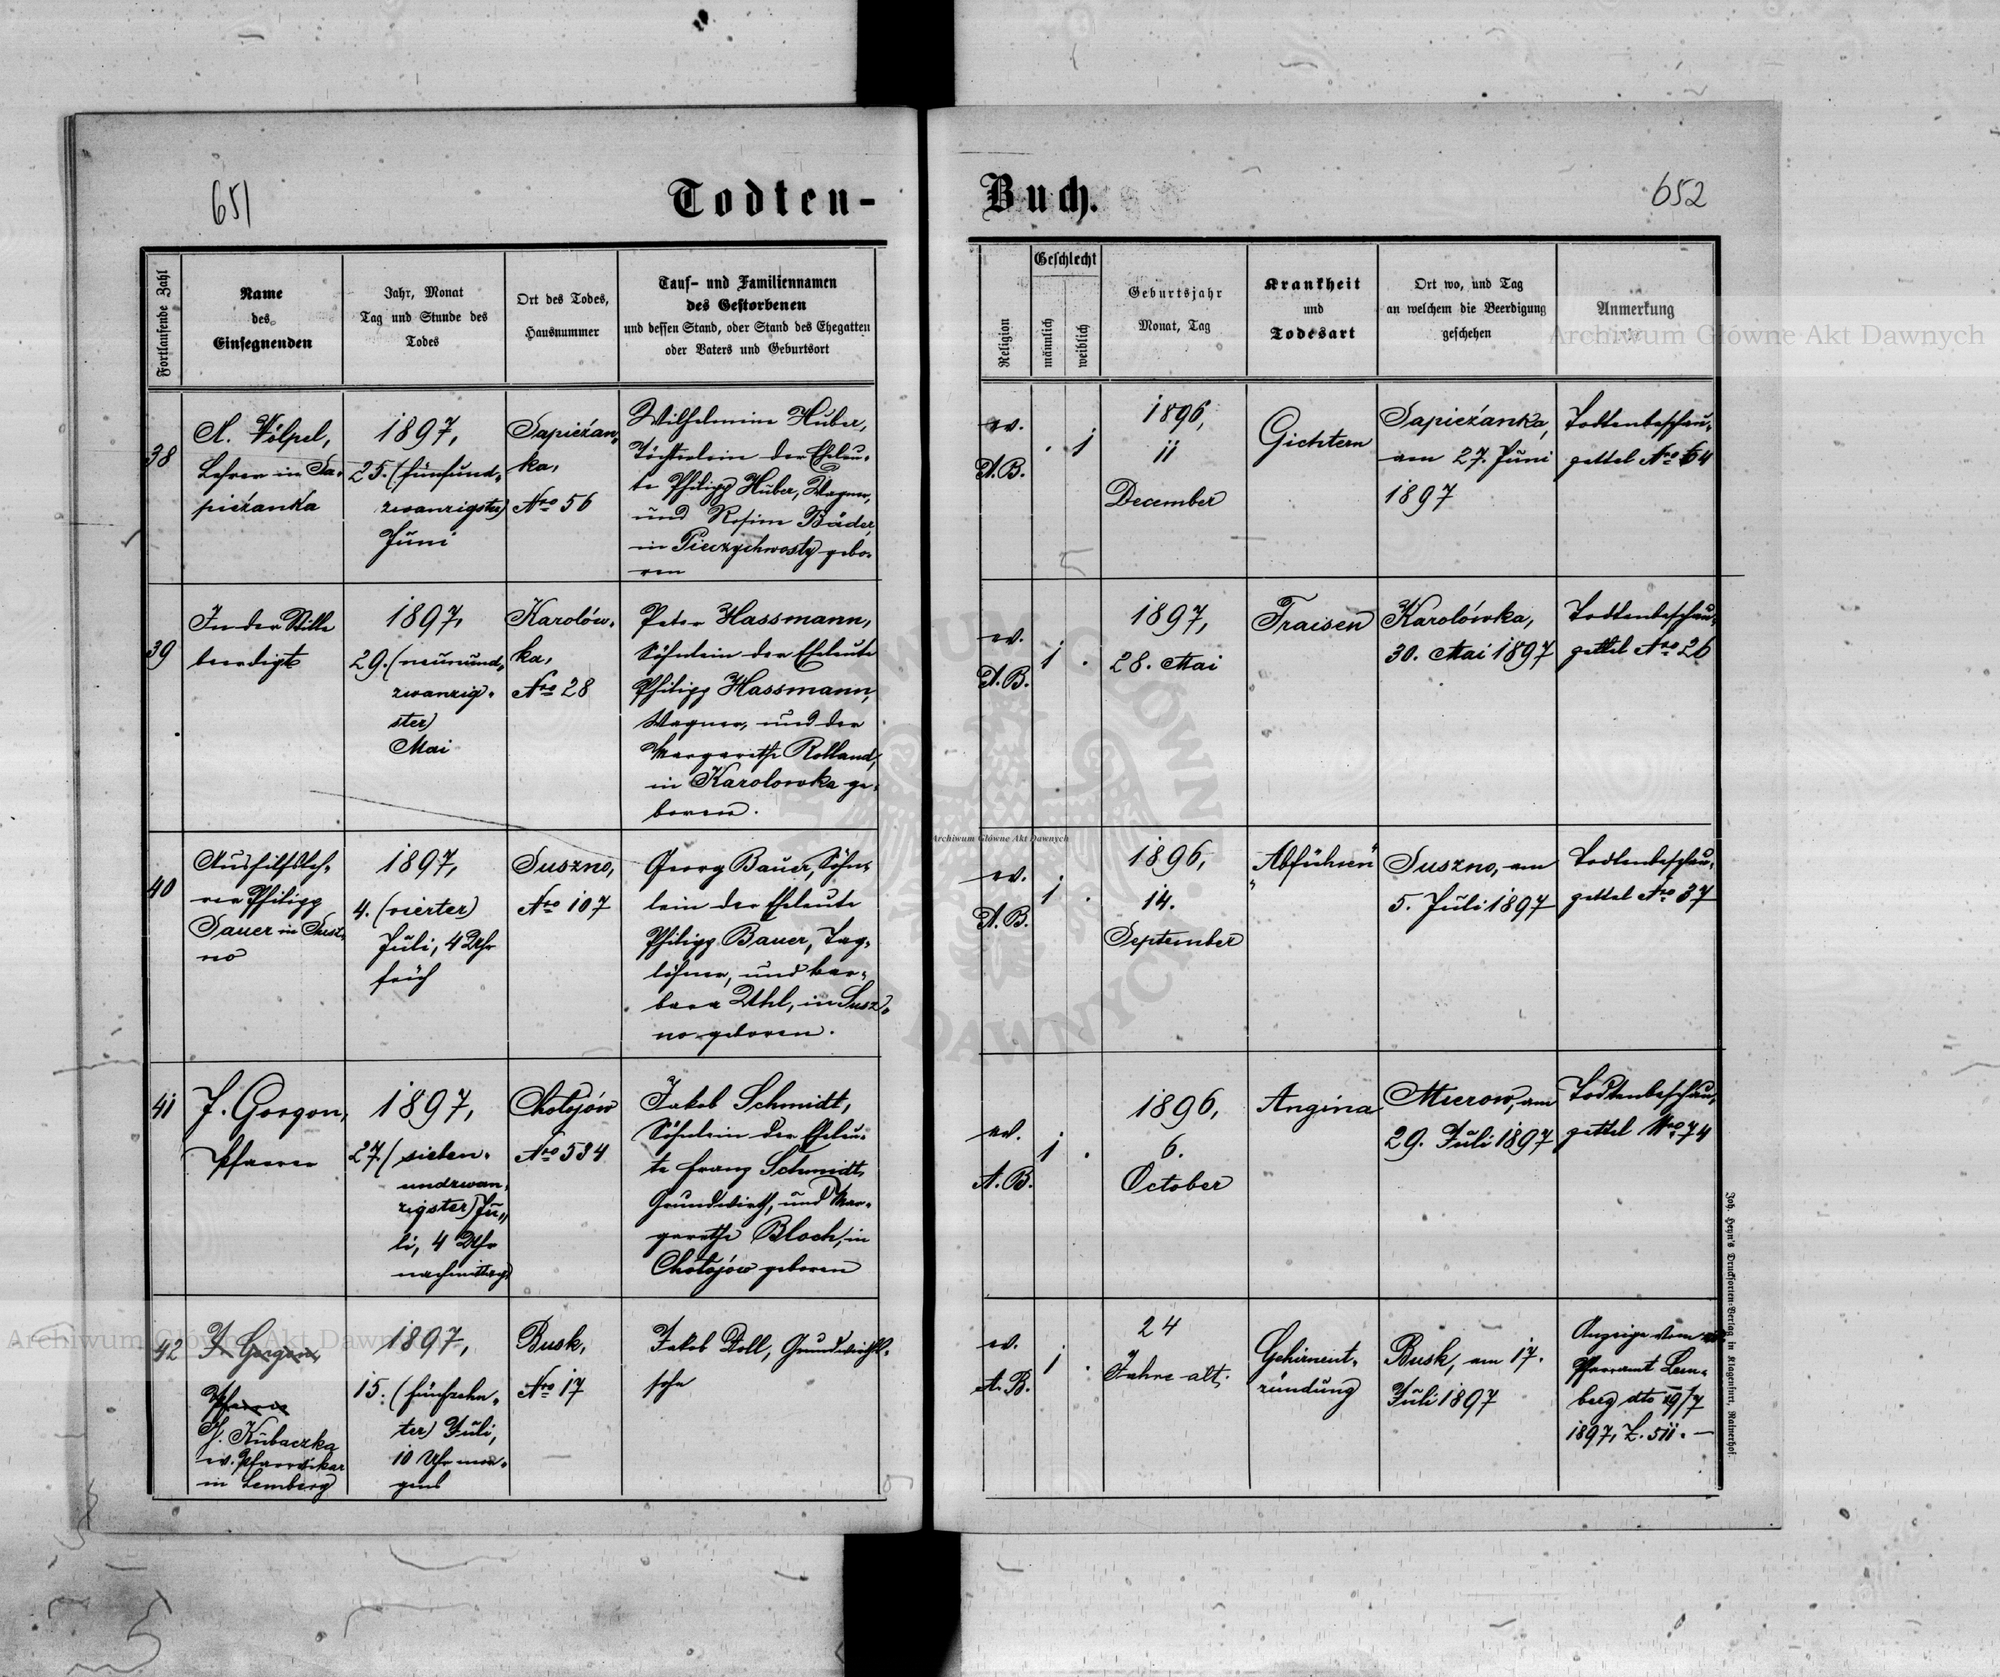 651
Todten-
Buch.
652
Fortlaufende Zahl
Name
des
Einsegnenden
Jahr, Monat
Tag und Stunde des
Todes
Ort des Todes,
Hausnummer
Tauf- und Familiennamen
des Gestorbenen
und dessen Stand, oder Stand des Ehegatten
oder Vaters und Geburtsort
Religion
Geschlecht
männlich
weiblich
Geburtsjahr
Monat, Tag
Krankheit
und
Todesart
Ort wo, und Tag
an welchem die Beerdigung
geschehen
Anmerkung
38
A. Völpel,
Lehrer in Sa-
pieżanka
1897,
25. (fünfund-
zwanzigster)
Juni
Sapieżan-
ka,
Nro 56
Wilhelmine Huber,
Töchterlein der Eheleu-
te Philipp Huber, Wagner,
und Rosine Bäder,
in Pieczychwosty gebo-
ren
ev.
A.B.
1
1896,
11
December
Gichtern
Sapieżanka,
am 27. Juni
1897
Todtenbeschau-
zettel Nro 54
39
In der Stille
beerdigt
1897,
29. (neunund-
zwanzig-
ster)
Mai
Karolów-
ka,
Nro 28
Peter Hassmann,
Söhnlein der Eheleute
Philipp Hassmann,
Wagner, und der
Margarethe Rolland,
in Karolowka ge-
boren.
ev.
A.B.
1
1897,
28. Mai
Fraisen
Karolówka,
30. Mai 1897
Todtenbeschau-
zettel Nro 26
40
Aushilfsleh-
rer Philipp
Sauer in Susz-
no
1897,
4. (vierter)
Juli, 4 Uhr
früh
Suszno,
Nro 107
Georg Bauer, Söhn-
lein der Eheleute
Philipp Bauer, Tag-
löhner, und Bar-
bara Uhl, in Susz-
no geboren.
ev.
A.B.
1
1896,
14.
September
"Abführen"
Suszno, am
5. Juli 1897
Todtenbeschau-
zettel Nro 37
41
J. Gorgon,
Pfarrer
1897,
27. (sieben-
undzwan-
zigster) Ju-
li, 4 Uhr
nachmittags
Chołojów
Nro 534
Jakob Schmidt,
Söhnlein der Eheleu-
te Franz Schmidt,
Grundwirth, und Mar-
garethe Bloch, in
Chołojów geboren
ev.
A.B.
1
1896,
6.
October
Angina
Mierow, am
29. Juli 1897
Todtenbeschau-
zettel Nro 74
42
J. Gorgon,
Pfarrer
J. Kubaczka
ev. Pfarrvikar
in Lemberg
1897,
15. (fünfzehn-
ter) Juli,
10 Uhr mor-
gens
Busk,
Nro 17
Jakob Doll, Grundwirths-
sohn
ev.
A.B.
1
24
Jahre alt.
Gehirnent-
zündung
Busk, am 17.
Juli 1897
Anzeige vom
Pfarramt Lem-
berg dto 19/7
1897, Z. 511.
Joh. Heyn's Drucksorten-Verlag in Klagenfurt, Rainerhof.
Archiwum Główne Akt Dawnych
Archiwum Główne Akt Dawnych
Archiwum Główne Akt Dawnych